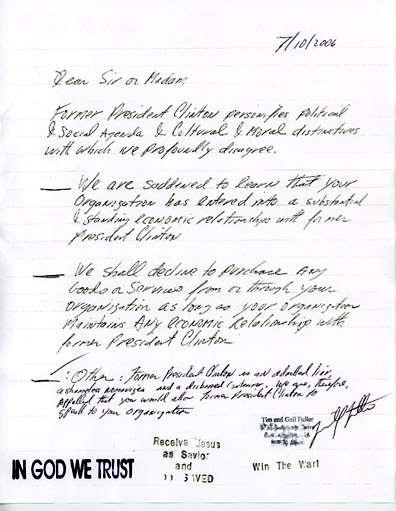 7/10/2006
Dear Sir or Madam:
Former President Clinton personifies political
& Social Agenda & Cultural & Moral distinctives
with which we profoundly disagree.
We are saddened to learn that your
Organization has entered into a substantial
& standing economic relationship with former
President Clinton
We shall decline to purchase Any
Goods or Services from or through your
organization as long as your organization
maintains ANY economic Relationship with
former President Clinton
: Other : Former President Clinton is an admitted liar,
a shameless and a disbarred lawyer. We are, therefore,
Appalled that you would allow former President Clinton to
speak to your organization
Tim and Gail Fuller
Receive Jesus
as Savior
and
SAVED
IN GOD WE TRUST
Win The War!